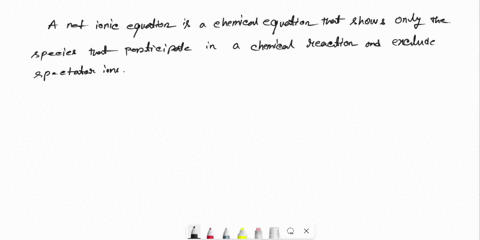 A net ionic equation is a chemical equation that shows only the
species that participate in a chemical reaction and exclude
spectator ions.